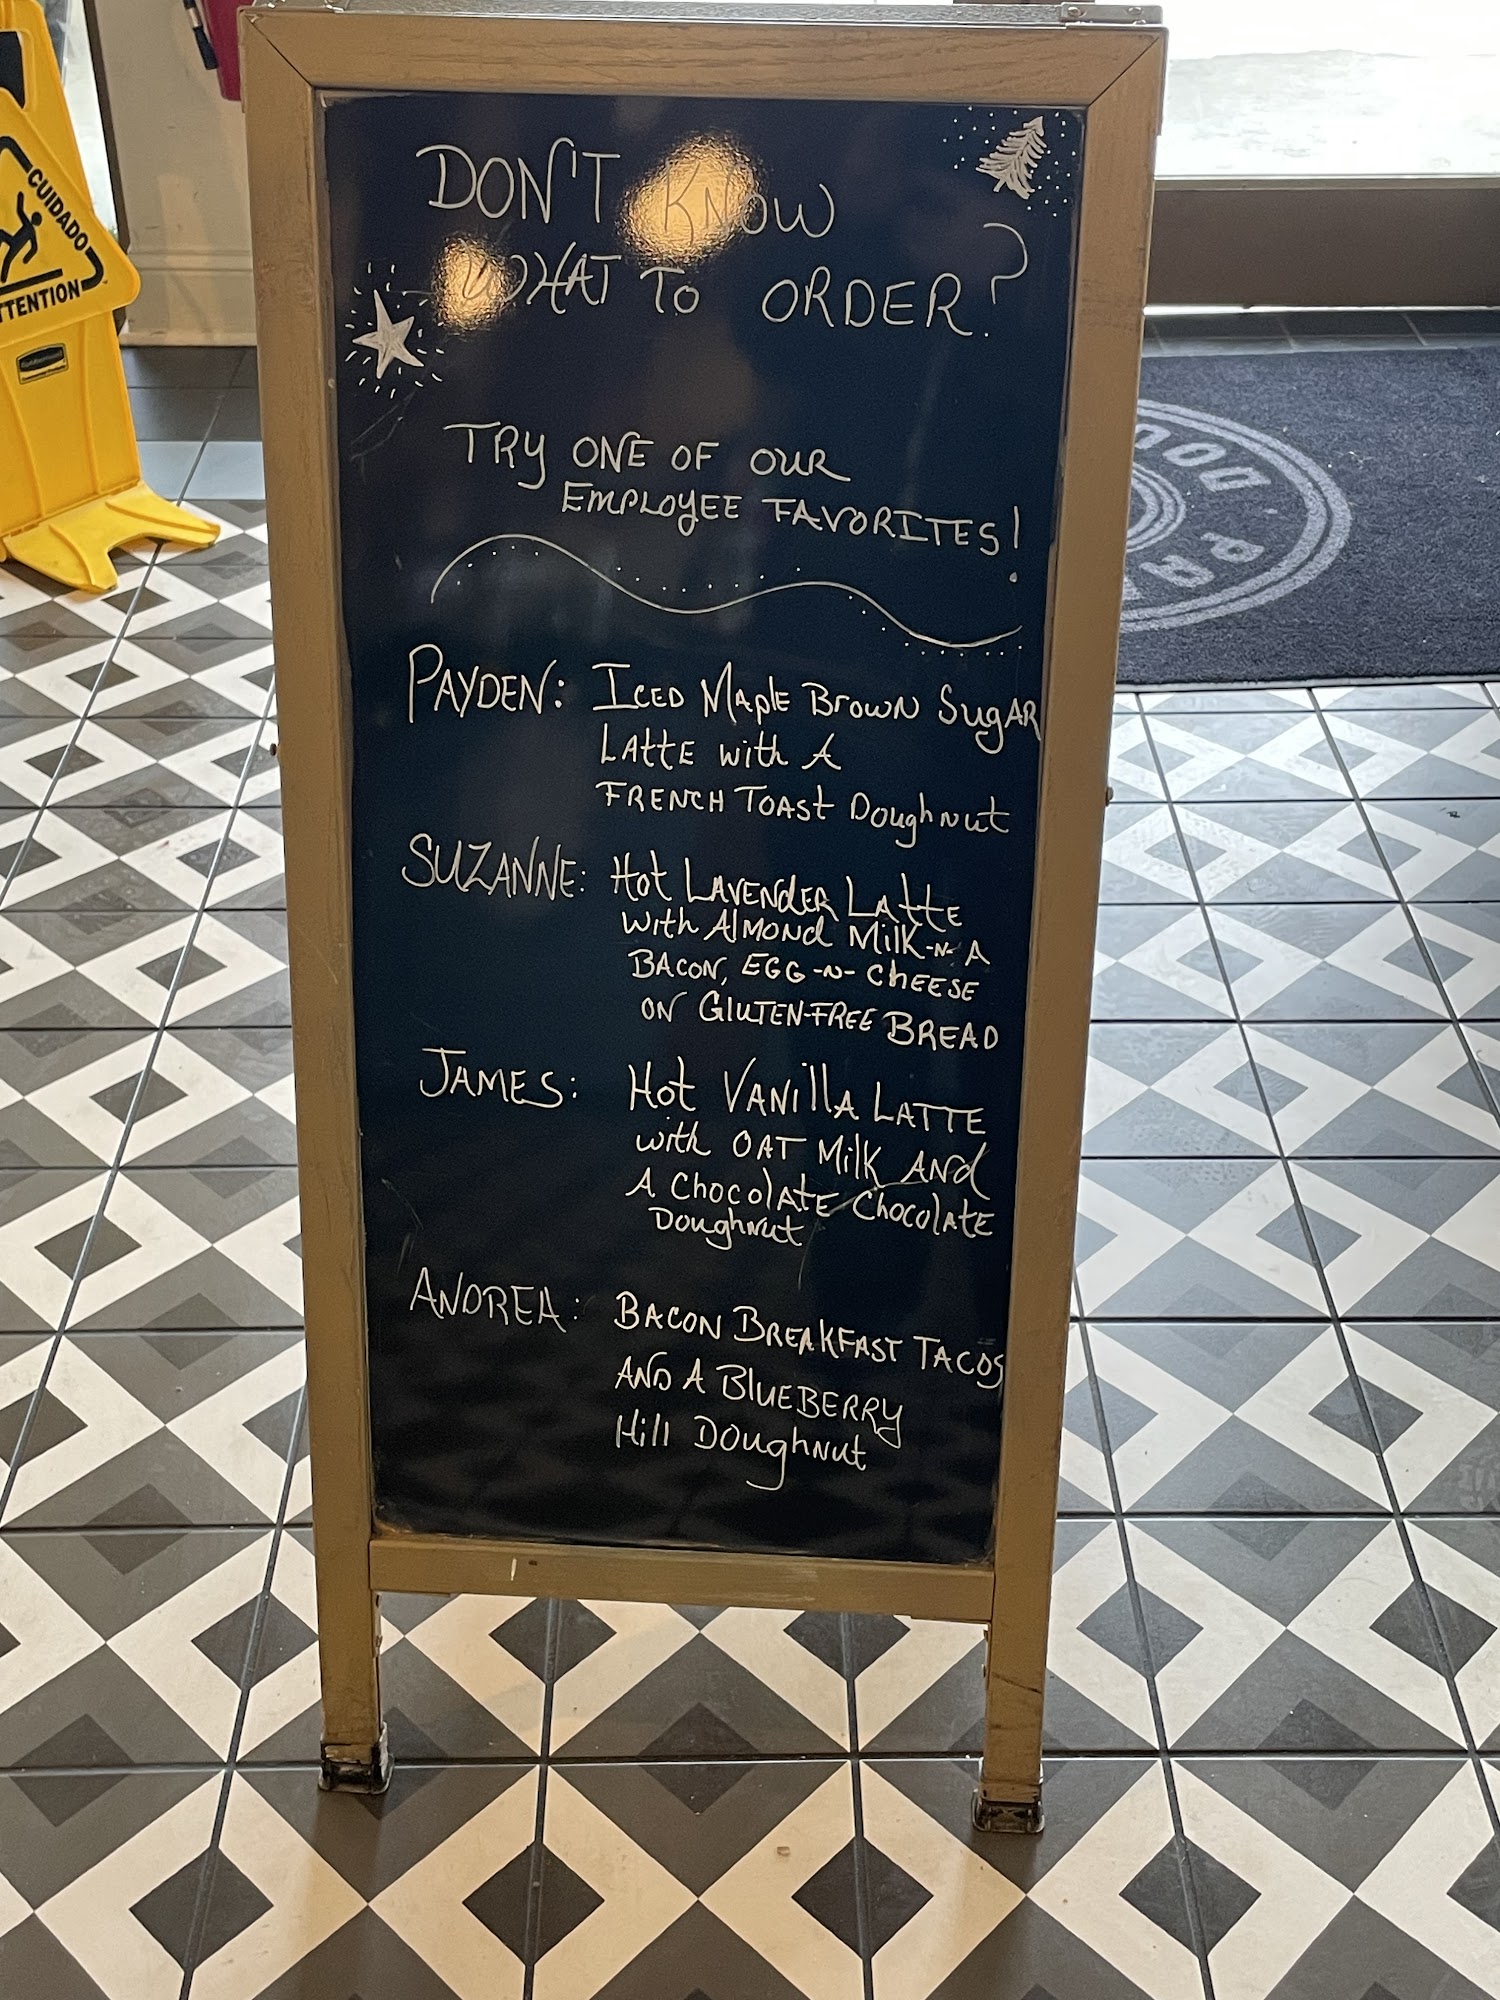 DON'T KNOW
WHAT TO ORDER?
TRY ONE OF OUR
EMPLOYEE FAVORITES!
PAYDEN: ICED MAPLE BROWN SUGAR
LATTE WITH A
FRENCH TOAST DOUGHNUT
SUZANNE: HOT LAVENDER LATTE
WITH ALMOND MILK -N- A
BACON, EGG -N- CHEESE
ON GLUTEN-FREE BREAD
JAMES: HOT VANILLA LATTE
WITH OAT MILK AND
A CHOCOLATE CHOCOLATE
DOUGHNUT
ANDREA: BACON BREAKFAST TACOS
AND A BLUEBERRY
HILL DOUGHNUT
CUIDADO
TTENTION